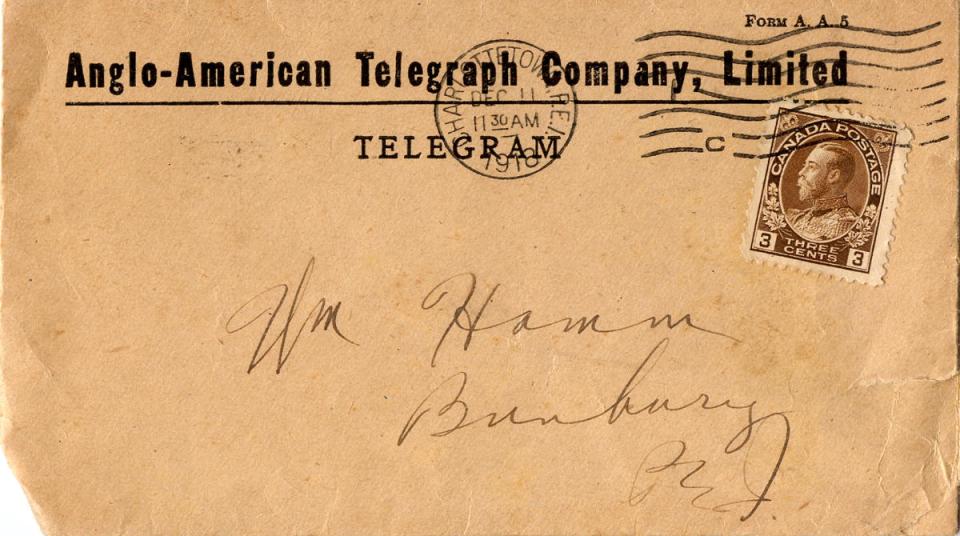 FORM A. A. 5
Anglo-American Telegraph Company, Limited
TELEGRAM
CHARLOTTETOWN, P.E.I.
DEC 11
11 30 AM
1918
C
CANADA POSTAGE
3 THREE CENTS 3
Wm Hamm
Bunbury
P.E.I.